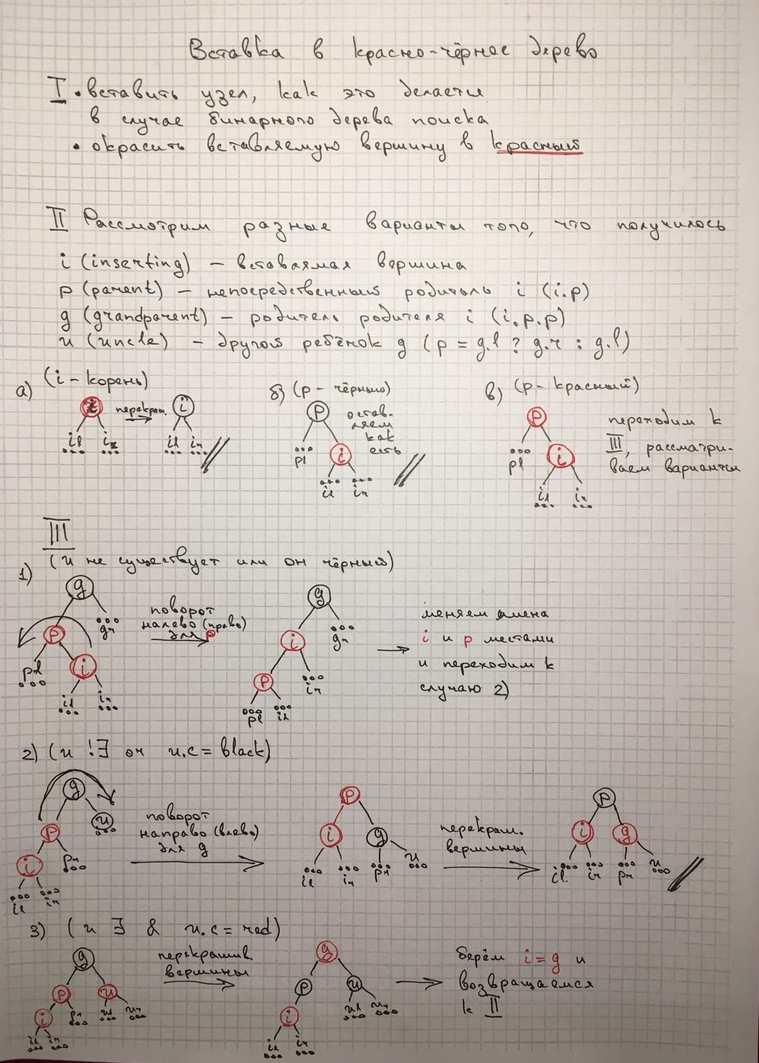 Вставка в красно-чёрное дерево
I • вставить узел, как это делается
в случае бинарного дерева поиска
• окрасить вставляемую вершину в красный
II Рассмотрим разные варианты того, что получилось
i (inserting) – вставляемая вершина
p (parent) – непосредственный родитель i (i.p)
g (grandparent) – родитель родителя i (i.p.p)
u (uncle) – другой ребёнок g (p = g.l ? g.r : g.l)
а) (i – корень)
i перекраш. i
il ir il ir
б) (p – чёрный)
p остав-
ляем
как
есть
pl i
il ir
в) (p – красный)
p переходим к
III, рассматри-
ваем варианты
pl i
il ir
III
1) (u не существует или он чёрный)
g
p gr
pl i
il ir
поворот
налево (право)
для p
g
i gr
p ir
pl il
меняем имена
i и p местами
и переходим к
случаю 2)
2) (u !∃ or u.c = black)
g
p u
i pr
il ir
поворот
направо (влево)
для g
p
i g
il ir pr u
перекраш.
вершины
p
i g
il ir pr u
3) (u ∃ & u.c = red)
g
p u
i pr ul ur
il ir
перекрашив.
вершины
g
p u
i ul ur
il ir
берём i = g и
возвращаемся
к II